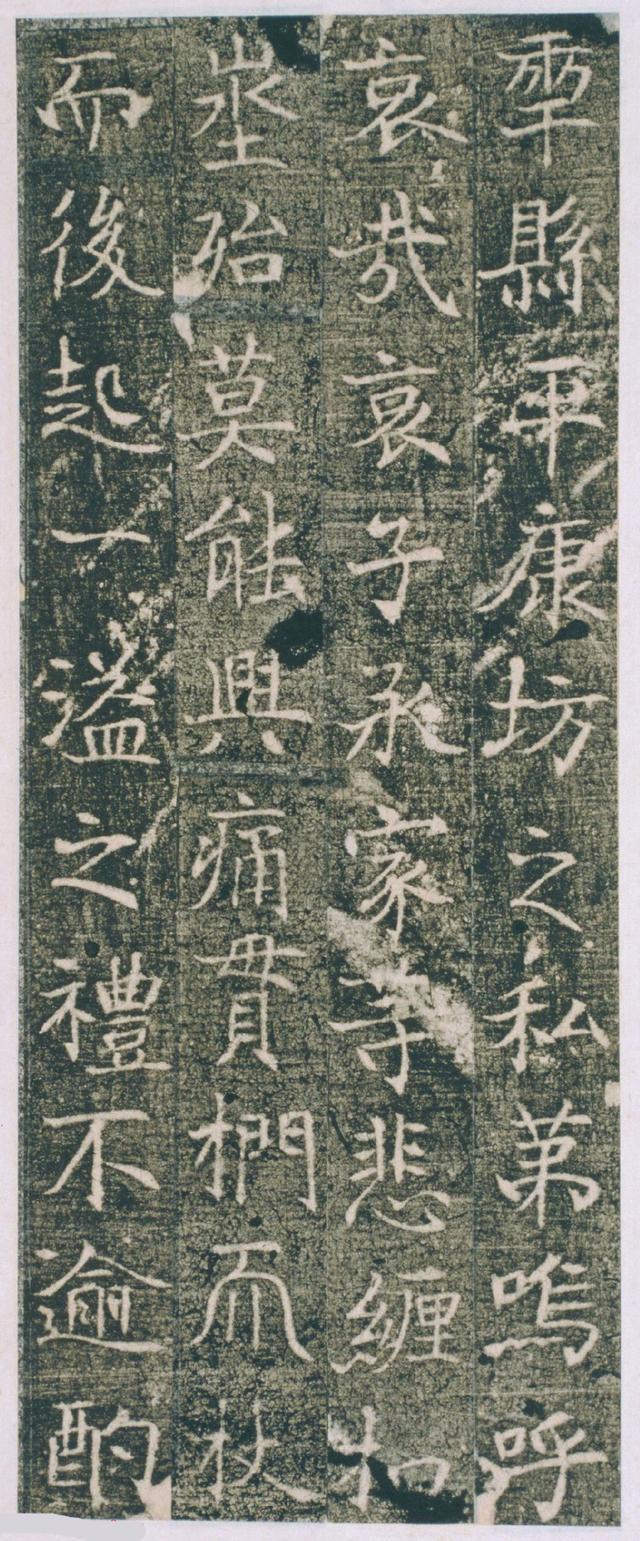 年縣平康坊之私弟嗚呼
哀哉哀子承家等悲纏扣
埊殆莫能興痛貫椚而杖
而後起一溢之禮不逾酌